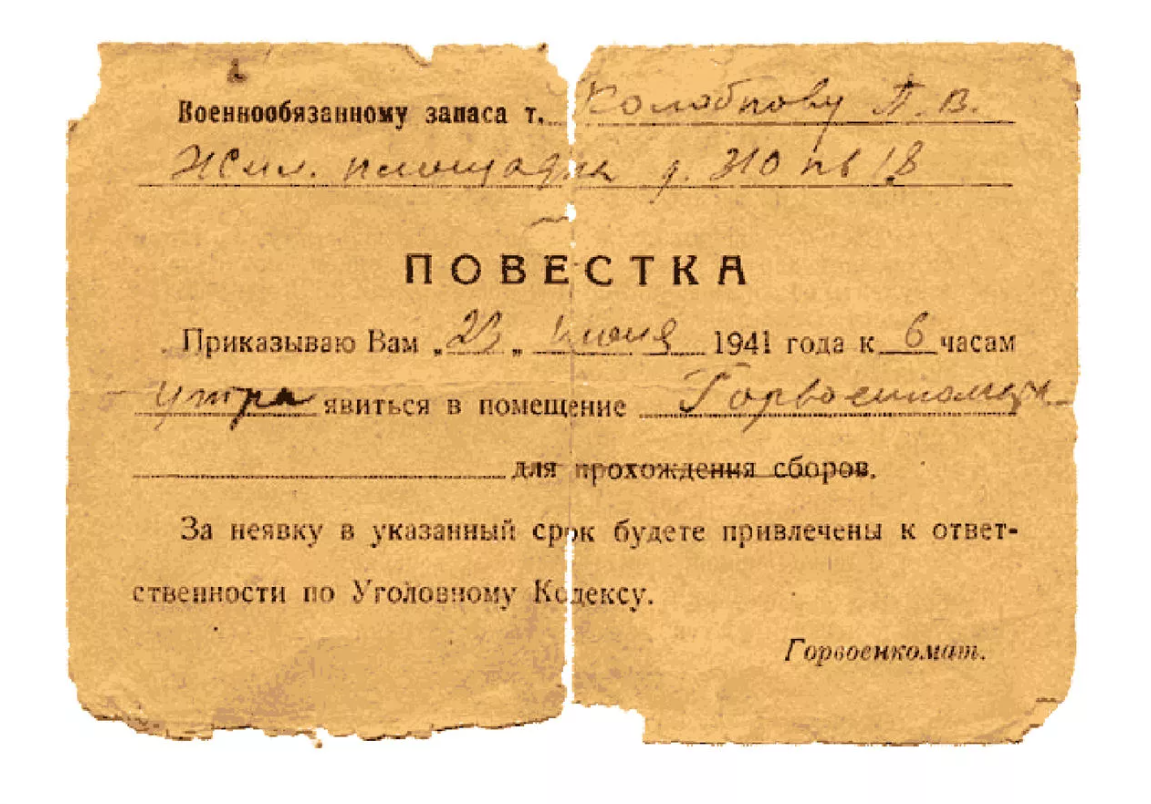 Военнообязанному запаса т. Колобпову П. В.
Жил. площадка д. № кв 18
ПОВЕСТКА
Приказываю Вам „23„ июня 1941 года к 6 часам
утра явиться в помещение Горвоенкомат
для прохождения сборов.
За неявку в указанный срок будете привлечены к ответ-
ственности по Уголовному Кодексу.
Горвоенкомат.